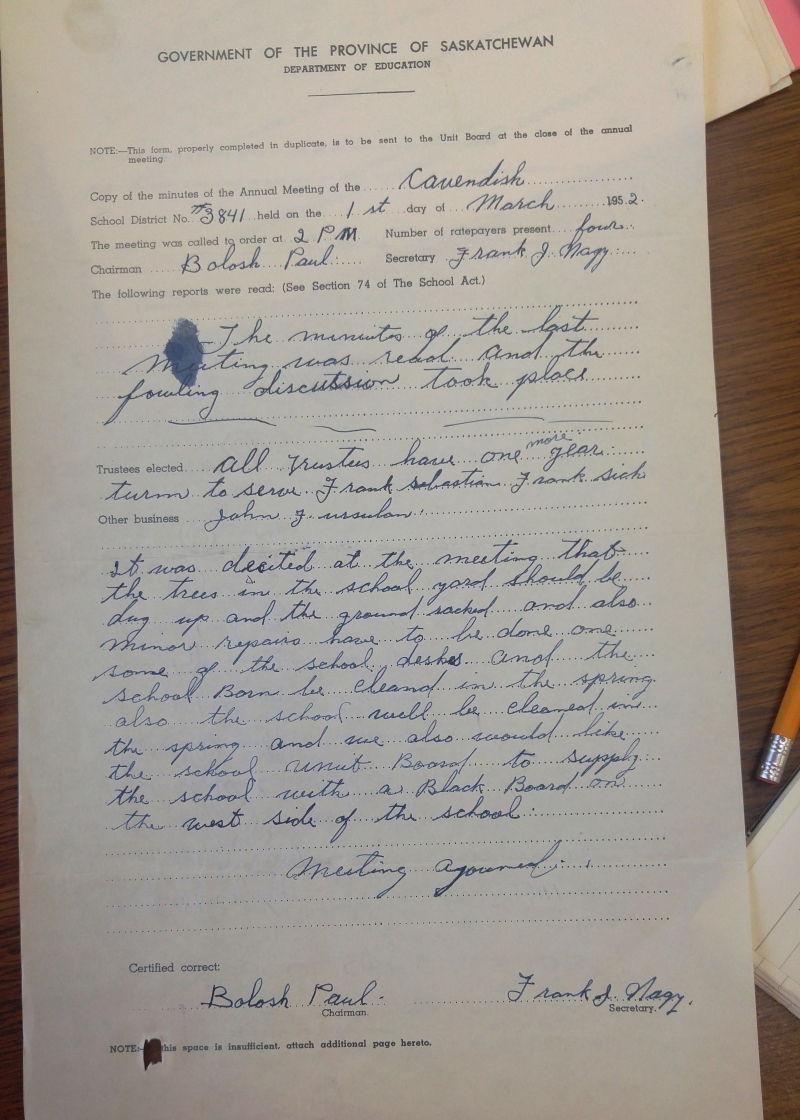 GOVERNMENT OF THE PROVINCE OF SASKATCHEWAN
DEPARTMENT OF EDUCATION
NOTE:—This form, properly completed in duplicate, is to be sent to the Unit Board at the close of the annual
meeting.
Copy of the minutes of the Annual Meeting of the Cavendish
School District No. #3841 held on the 1 st day of March 1952.
The meeting was called to order at 2 P M Number of ratepayers present four
Chairman Bolosh Paul Secretary Frank J. Nagy
The following reports were read: (See Section 74 of The School Act.)
The minutes of the last
Meeting was read and the
fowling discussion took place
Trustees elected All Trustees have one more year
turm to serve Frank sebastian Frank sick
Other business John F ursulan
It was decited at the meeting that
the trees in the school yard should be
dug up and the ground sacked and also
minor repairs have to be done one
some of the school deskes and the
school Born be cleand in the spring
also the school well be cleaned in
the spring and we also would like
the school unut Board to supply
the school with a Black Board on
the west side of the school.
Meeting agourned.
Certified correct:
Bolosh Paul Frank J. Nagy.
Chairman. Secretary.
NOTE:— this space is insufficient, attach additional page hereto.